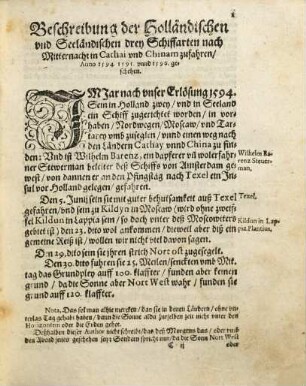 1
Beschreibung der Holländischen
vnd Seeländischen drey Schiffarten nach
Mitternacht in Cathai vnd Chinam zufahren/
Anno 1594. 1595. vnnd 1596. ge-
schehen.
IM Jar nach vnser Erlösung 1594.
Sein in Holland zwey/ vnd in Seeland
ein Schiff zugerichtet worden/ in vor-
haben/ Nordwegen/ Moscaw/ vnd Tar-
tarey vmb zuseglen/ vnnd einen weg nach
den Ländern Cathay vnnd China zu fin-
den: Vnd ist Wilhelm Barenz, ein dapferer vñ wolerfahr-
Wilhelm Ba-
renz Steuer-
man.
ner Stewerman
deß Schiffs von Amsterdam ge-
west/ von dannen er an den Pfingstag nach Texel ein In-
sul vor Holland gelegen/ gefahren.
Den 5. Junij sein sie mit guter behutsamkeit auß Texel
Texel.
gefahren/ vnd sein zu Kildyn in Moscaw (wird ohne zweif-
fel Kildun in Lappia sein/ so vnder deß Moscowiters
Kildun in Lap-
pia,
gebiet ist) den 23. dito wol ankommen/ dieweil aber diß ein
gemeine Reiß ist/ wollen wir nicht viel davon sagen.
Den 29. dito sein sie jhren strich Nort ost zugesegelt.
Den 30. dito fuhren sie 25. Meilen/ senckten vmb Mit-
tag das Grundpley auff 100. klaffter/ funden aber keinen
grund/ da die Sonne aber Nort West wahr/ funden sie
grund auff 120. klaffter.
Nota. Das sol man alhie mercken/ das sie in denen Ländern/ ohne vn-
terlas Tag gehabt haben/ dann die Sonne alda zurselben zeit nicht vnter den
Horizontem oder die Erden gehet.
Deßhalben dieser Author nicht schreibt/ das deß Morgens das/ oder
deß Abend
geschehen
da die Sonn Nort West
C ij
aber